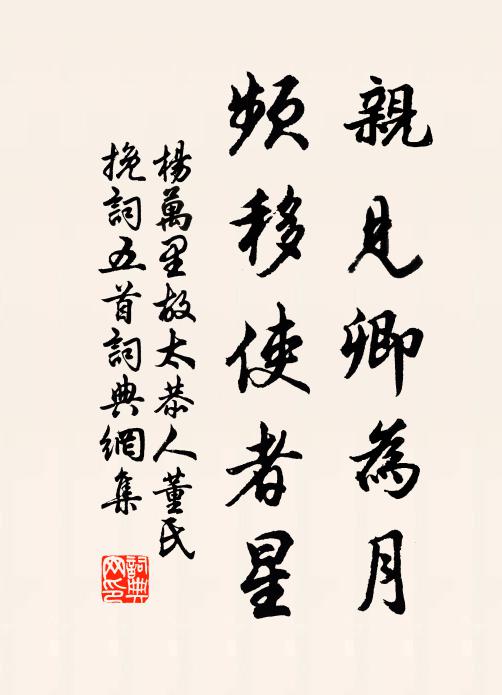 親見卿為月
頻移使者星
楊萬里故太恭人董氏
挽詞五首詞典網集
詞典
网印